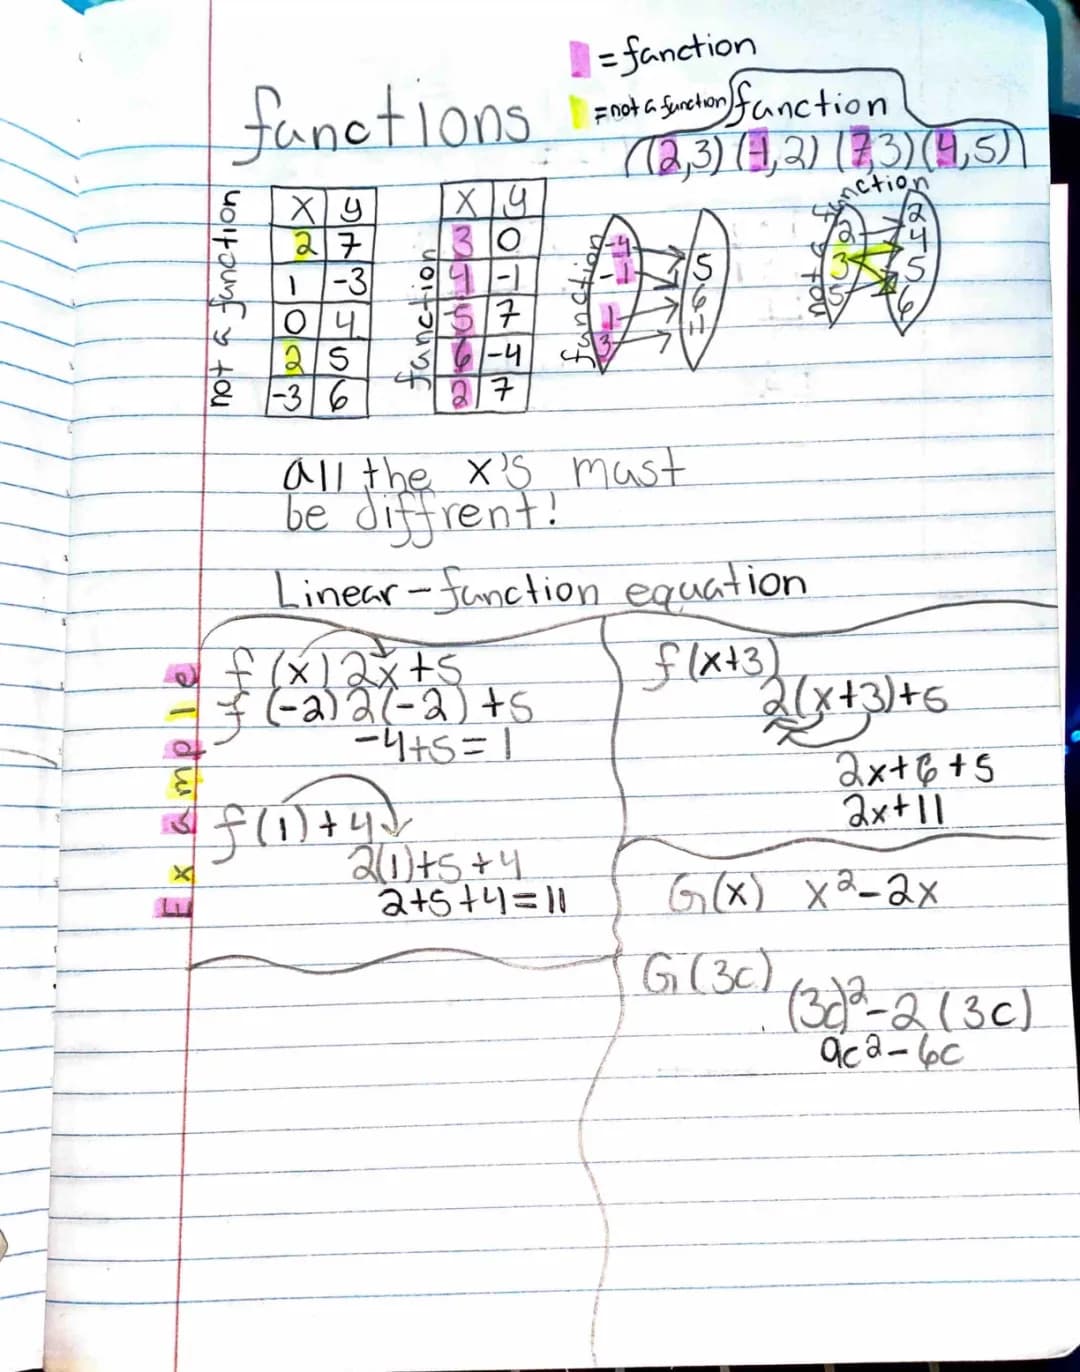 = function
= not a function
functions
function
(2,3) (-1,2) (7,3) (4,5)
not a function
x y
2 7
1 -3
0 4
2 5
-3 6
function
x y
3 0
4 -1
5 7
6 -4
2 7
function
-4
-1
1
3
5
6
not a function
2
3
5
2
4
5
6
all the x's must
be diffrent!
Linear-function equation
Example
f(x) 2x+5
f(-2) 2(-2)+5
-4+5=1
f(1)+4
2(1)+5+4
2+5+4=11
f(x+3)
2(x+3)+5
2x+6+5
2x+11
G(x) x²-2x
G(3c)
(3c)²-2(3c)
9c²-6c